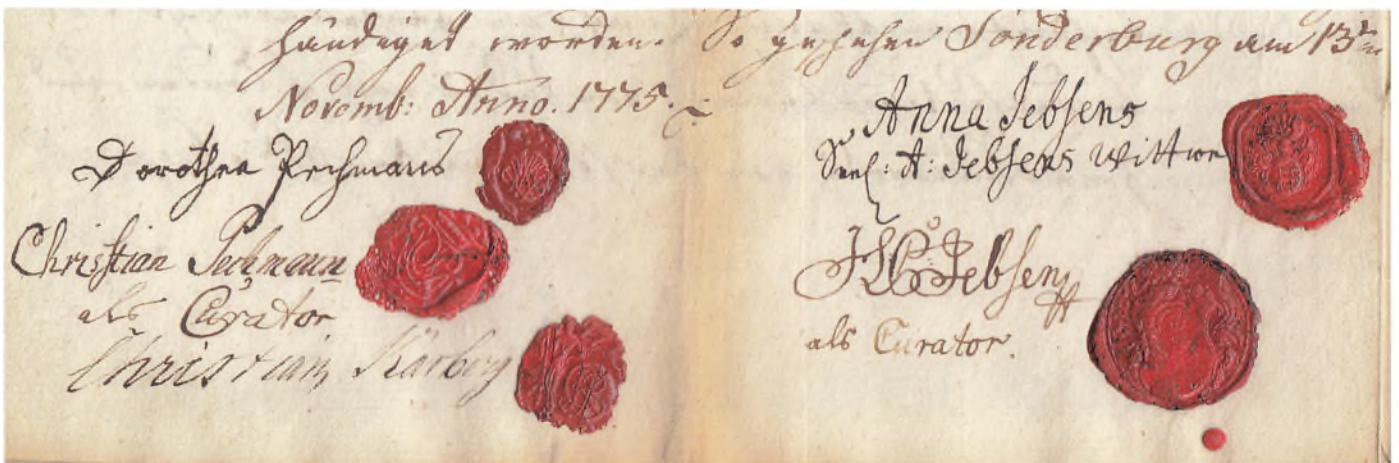 händiget worden. So geschehen Sonderburg am 13ten
Novemb: Anno. 1775.
Dorothea Pechmans
Christian Pechmann
als Curator
Christian Karberg
Anna Jebsens
Seel: A: Jebsens Wittwe
H C Jebsen
als Curator.